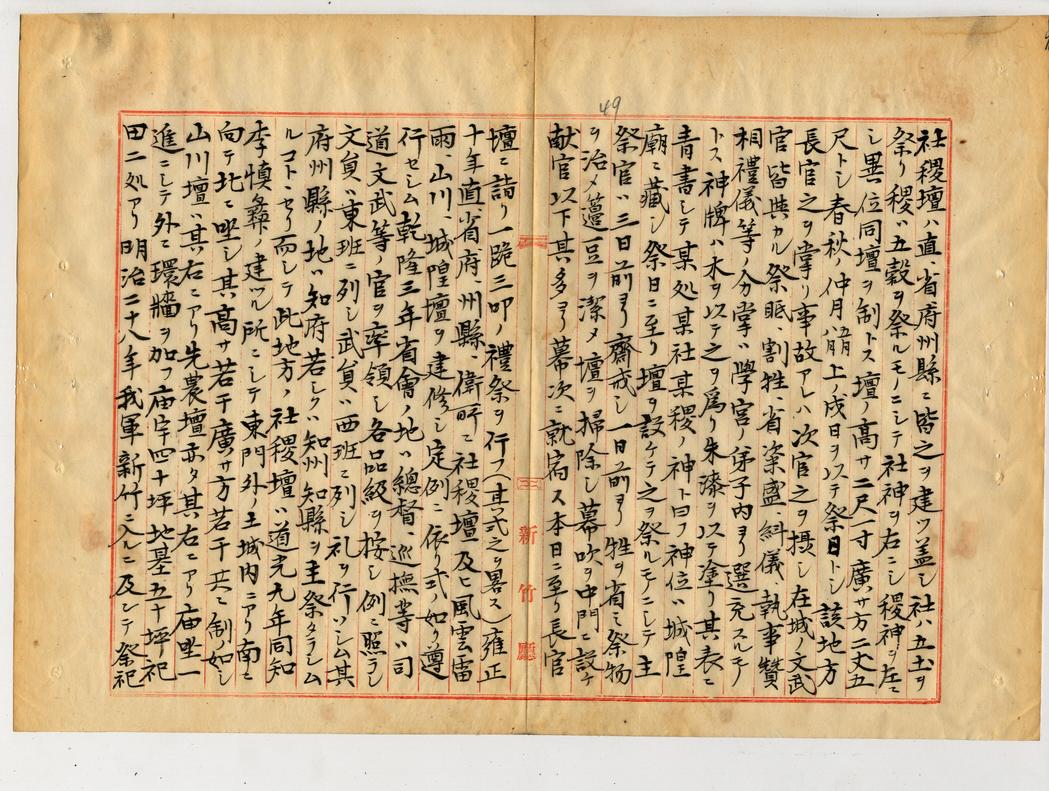 49
社稷壇ハ直省府州縣ニ皆之ヲ建ツ盖シ社ハ五土ヲ
祭リ稷ハ五穀ヲ祭ルモノニシテ社神ヲ右ニシ稷神ヲ左ニ
シ異位同壇ヲ制トス壇ノ高サ二尺一寸廣サ方二丈五
尺トシ春秋ノ仲月上ノ戊日ヲ以テ祭日トシ該地方
長官之ヲ掌リ事故アレハ次官之ヲ摂シ在城ノ文武
官皆與カル祭眂、割牲、省粢盛、糾儀、執事贊
相禮儀等ノ分掌ハ學官ノ弟子内ヨリ選充スルモノ
トス神牌ハ木ヲ以テ之ヲ爲リ朱漆ヲ以テ塗リ其表ニ
青書シテ某処某社某稷ノ神ト曰フ神位ハ城隍
廟ニ藏シ祭日ニ至リ壇ヲ設ケテ之ヲ祭ルモノニシテ主
祭官ハ三日前ヨリ齋戒シ一日前ヨリ牲ヲ省ミ祭物
ヲ治メ籩豆ヲ潔メ壇ヲ掃除シ幕次ヲ中門ニ設ケ
献官以下其多ヨリ幕次ニ就宿ス本日ニ至リ長官
新竹廳
壇ニ詣リ一跪三叩ノ禮祭ヲ行フ(其式之ヲ畧ス)雍正
十年直省、府、州縣、衛所ニ社稷壇及ヒ風雲雷
雨、山川、城隍壇ヲ建修シ定例ニ依リ式ノ如ク遵
行セシム乾隆三年省會ノ地ハ總督、巡撫等ハ司
道文武等ノ官ヲ率領シ各品級ヲ按シ例ニ照ラシ
文員ハ東班ニ列シ武員ハ西班ニ列シ礼ヲ行ハシム其
府州縣ノ地ハ知府若シクハ知州知縣ヲ主祭タラシム
ルコトヽセリ而シテ此地方ノ社稷壇ハ道光九年同知
李慎彝ノ建ツル所ニシテ東門外ノ土城内ニアリ南ニ
向テ北ニ坐シ其高サ若干廣サ方若干共ニ制ノ如シ
山川壇ハ其右ニアリ先農壇亦タ其右ニアリ庙埕一
進ニシテ外ニ環牆ヲ加フ庙宇四十坪地基五十坪祀
田二処アリ明治二十八年我軍新竹ニ入ルニ及ンテ祭祀